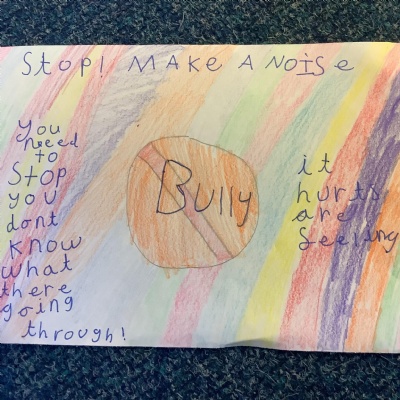 Stop! MAKE A NOISE
you
need
to
STOP
you
dont
know
what
there
going
through!
Bully
it
hurts
are
feeling